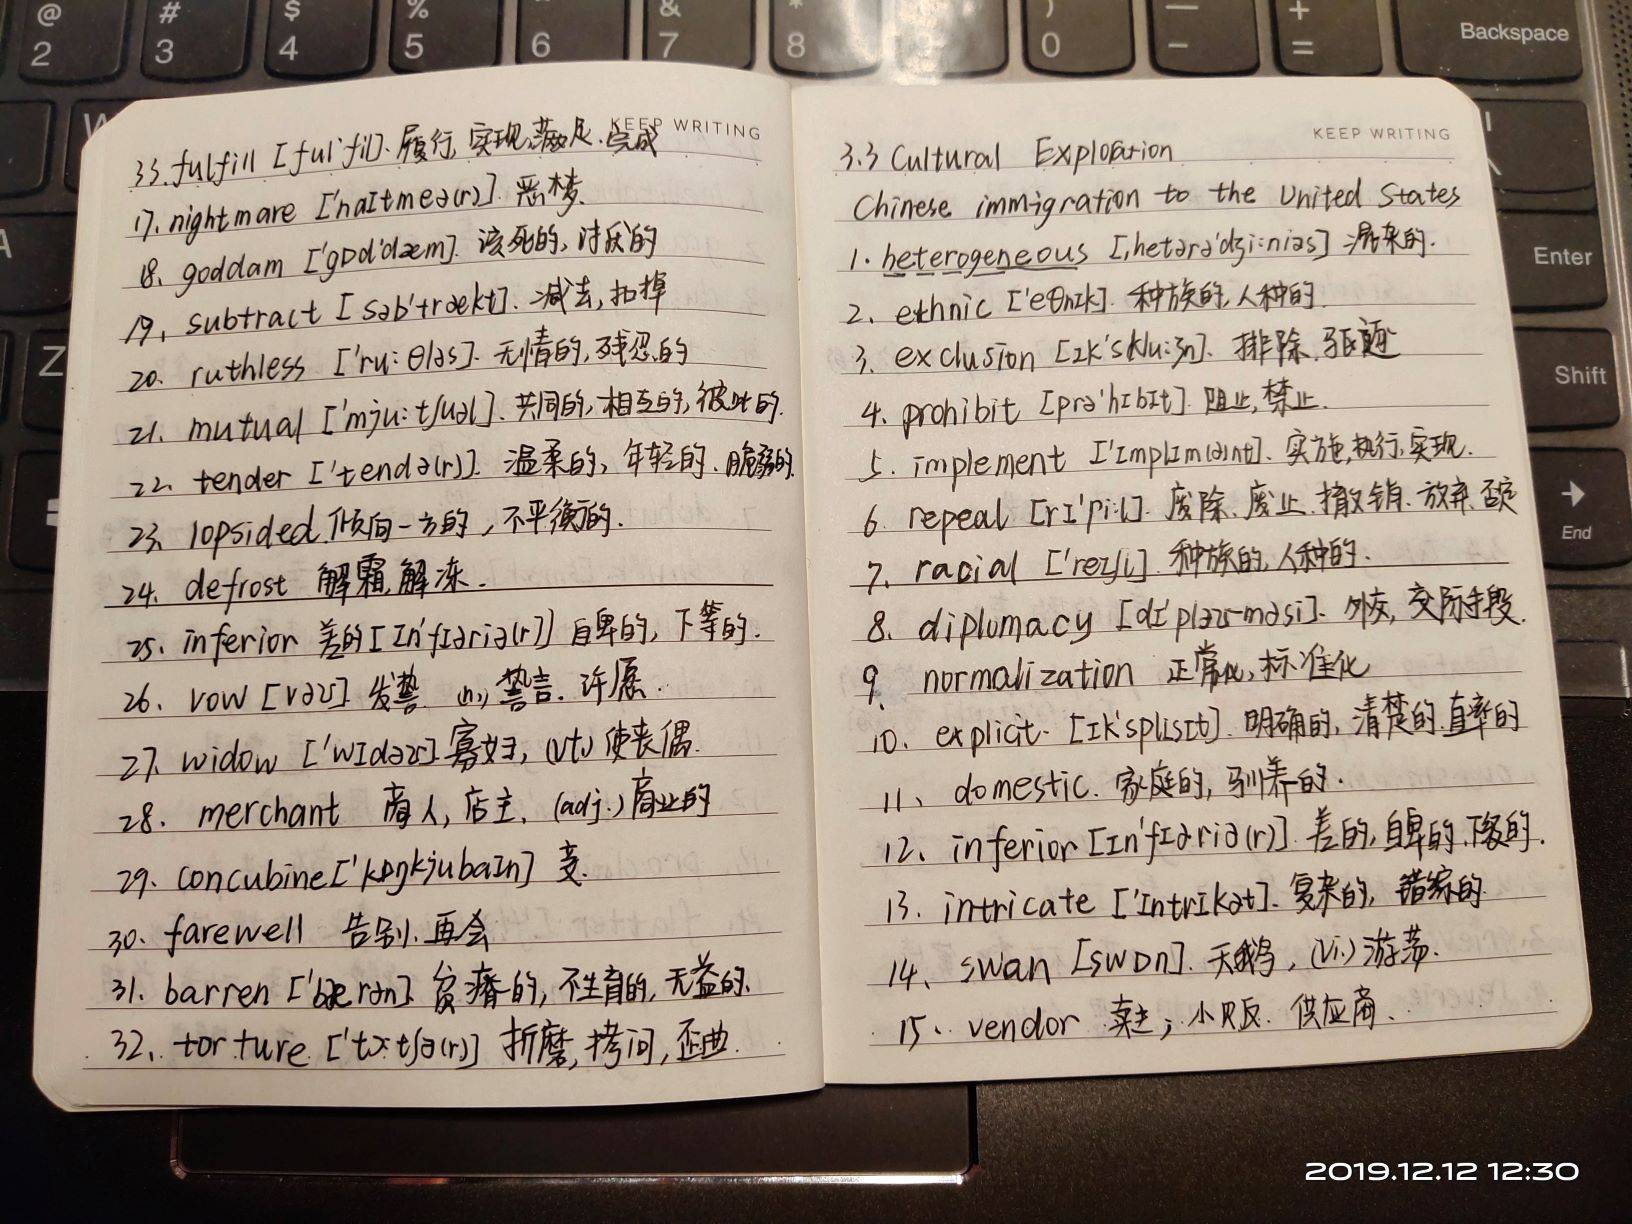 @ # $ % & * ) — +
2 3 4 5 6 7 8 0 − = Backspace
W
A
Z
Enter
Shift
End
KEEP WRITING
33. fulfill [ful'fil]. 履行, 实现, 满足. 完成
17. nightmare ['naɪtmeə(r)]. 恶梦.
18. goddam ['gɒd'dæm]. 该死的, 讨厌的
19. subtract [səb'trækt]. 减去, 扣掉
20. ruthless ['ru:θləs]. 无情的, 残忍的
21. mutual ['mju:tʃuəl]. 共同的, 相互的, 彼此的.
22. tender ['tendə(r)]. 温柔的, 年轻的. 脆弱的.
23. lopsided. 倾向一方的, 不平衡的.
24. defrost 解霜, 解冻.
25. inferior 差的 [ɪn'fɪəriə(r)] 自卑的, 下等的.
26. vow [vaʊ]. 发誓 (n.) 誓言. 许愿.
27. widow ['wɪdəʊ] 寡妇, (vt.) 使丧偶.
28. merchant 商人, 店主, (adj.) 商业的
29. concubine ['kɒŋkjubaɪn] 妾.
30. farewell 告别. 再会
31. barren ['bærən] 贫瘠的, 不生育的, 无益的.
32. torture. ['tɔ:tʃə(r)] 折磨, 拷问, 歪曲.
KEEP WRITING
3.3 Cultural Exploration
Chinese immigration to the United States
1. heterogeneous [,hetərə'dʒi:niəs] 混杂的.
2. ethnic ['eθnɪk]. 种族的, 人种的
3. exclusion [ɪk'sklu:ʒn]. 排除, 驱逐
4. prohibit [prə'hɪbɪt]. 阻止, 禁止.
5. implement ['ɪmplɪm(ə)nt]. 实施, 执行, 实现.
6. repeal [rɪ'pi:l]. 废除. 废止. 撤销. 放弃. 否定
7. racial ['reɪʃl]. 种族的, 人种的.
8. diplomacy [dɪ'pləʊ-məsi]. 外交, 交际手段.
9. normalization 正常化, 标准化
10. explicit. [ɪk'splɪsɪt]. 明确的, 清楚的. 直率的
11. domestic. 家庭的, 驯养的.
12. inferior [ɪn'fɪəriə(r)]. 差的, 自卑的. 下级的.
13. intricate ['ɪntrɪkət]. 复杂的, 错综的.
14. swan [swɒn]. 天鹅, (vi.) 游荡.
15. vendor 卖主; 小贩. 供应商.
2019.12.12 12:30